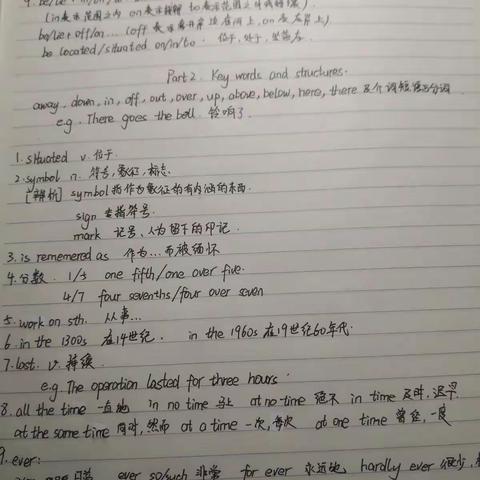 (in表示范围之内 on表示接壤 to表示范围之外
be/lie + off/on... (off 表示离开岸 on 在岸上)
be located/situated on/in/to. 位于,处于,坐落在
Part 2. Key words and structures.
away, down, in, off, out, over, up, above, below, here, there
e.g. There goes the bell. 铃响了.
1. situated v. 位于.
2. symbol n. 符号,象征,标志.
[辨析] symbol 指作为象征的有内涵的东西.
sign 主指符号.
mark 记号、人为留下的印记.
3. is rememered as 作为...而被缅怀
4. 分数. 1/5 one fifth/one over five.
4/7 four sevenths/four over seven
5. work on sth. 从事...
6. in the 1300s 在14世纪. in the 1960s 在19世纪60年代.
7. last. v. 持续.
e.g. The operation lasted for three hours.
8. all the time 一直地 in no time 马上 at no time 绝不 in time 及时,迟早.
at the same time 同时,然而 at a time 一次,每次 at one time 曾经,一度
9. ever:
ever so/such 非常 for ever 永远地 hardly ever 很少,